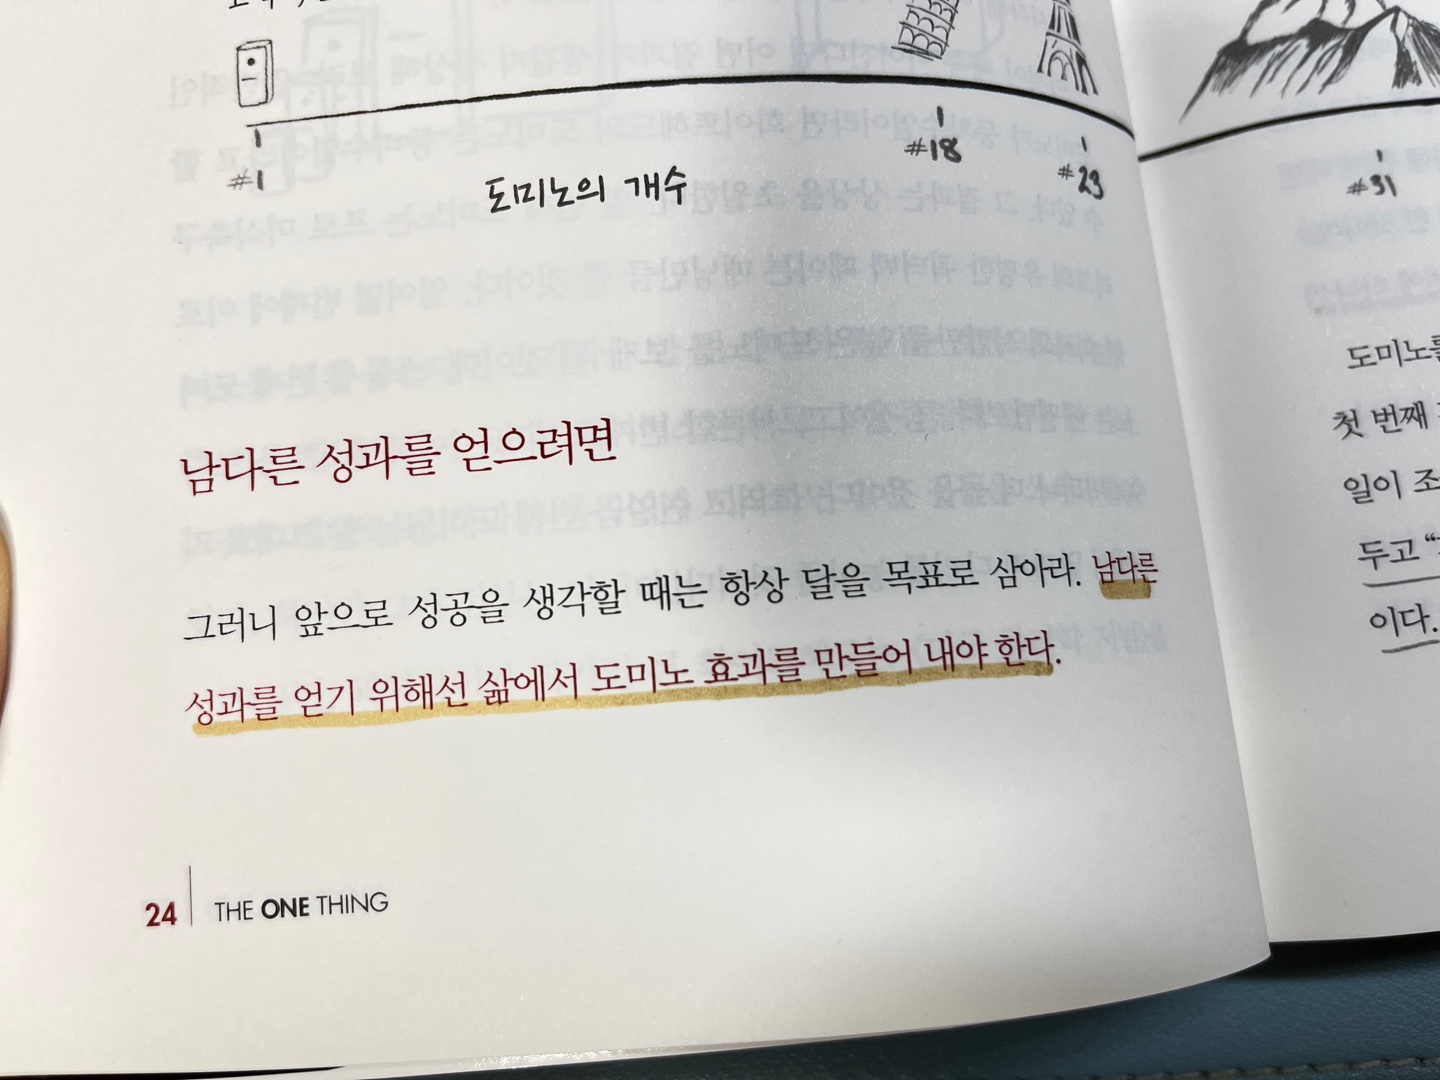 #1
도미노의 개수
#18
#23
#31
남다른 성과를 얻으려면
그러니 앞으로 성공을 생각할 때는 항상 달을 목표로 삼아라. 남다른
성과를 얻기 위해선 삶에서 도미노 효과를 만들어 내야 한다.
24
THE ONE THING
도미노를
첫 번째
일이
두고
이다.